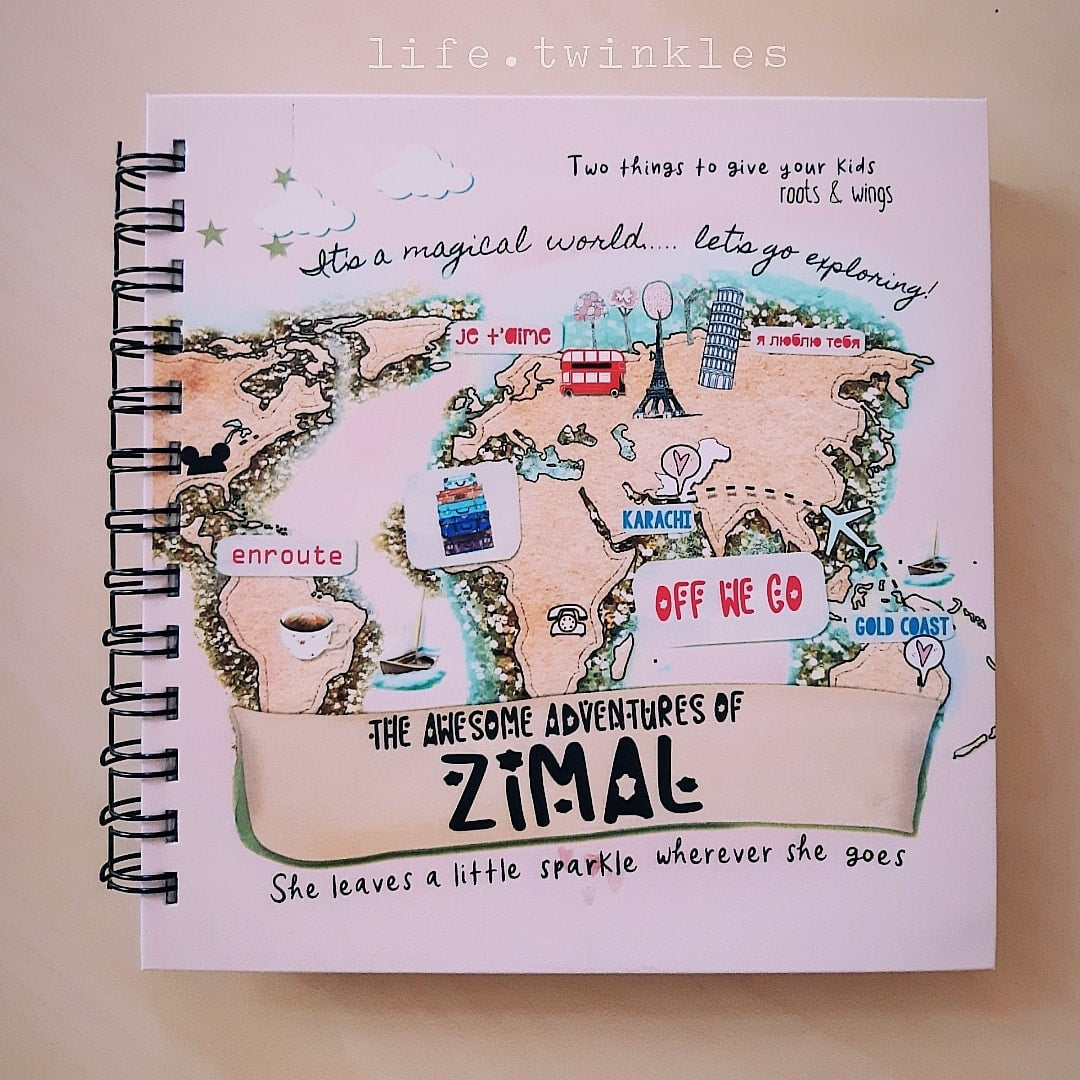 life.twinkles
Two things to give your Kids
roots & wings
It's a magical world.... let's go exploring!
je t'aime
я люблю тебя
KARACHI
enroute
OFF WE GO
GOLD COAST
THE AWESOME ADVENTURES OF
ZIMAL
She leaves a little sparkle wherever she goes